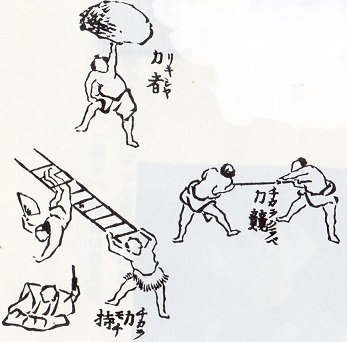 リキシヤ
力者
チカラクラベ
力競
チカラモチ
力持